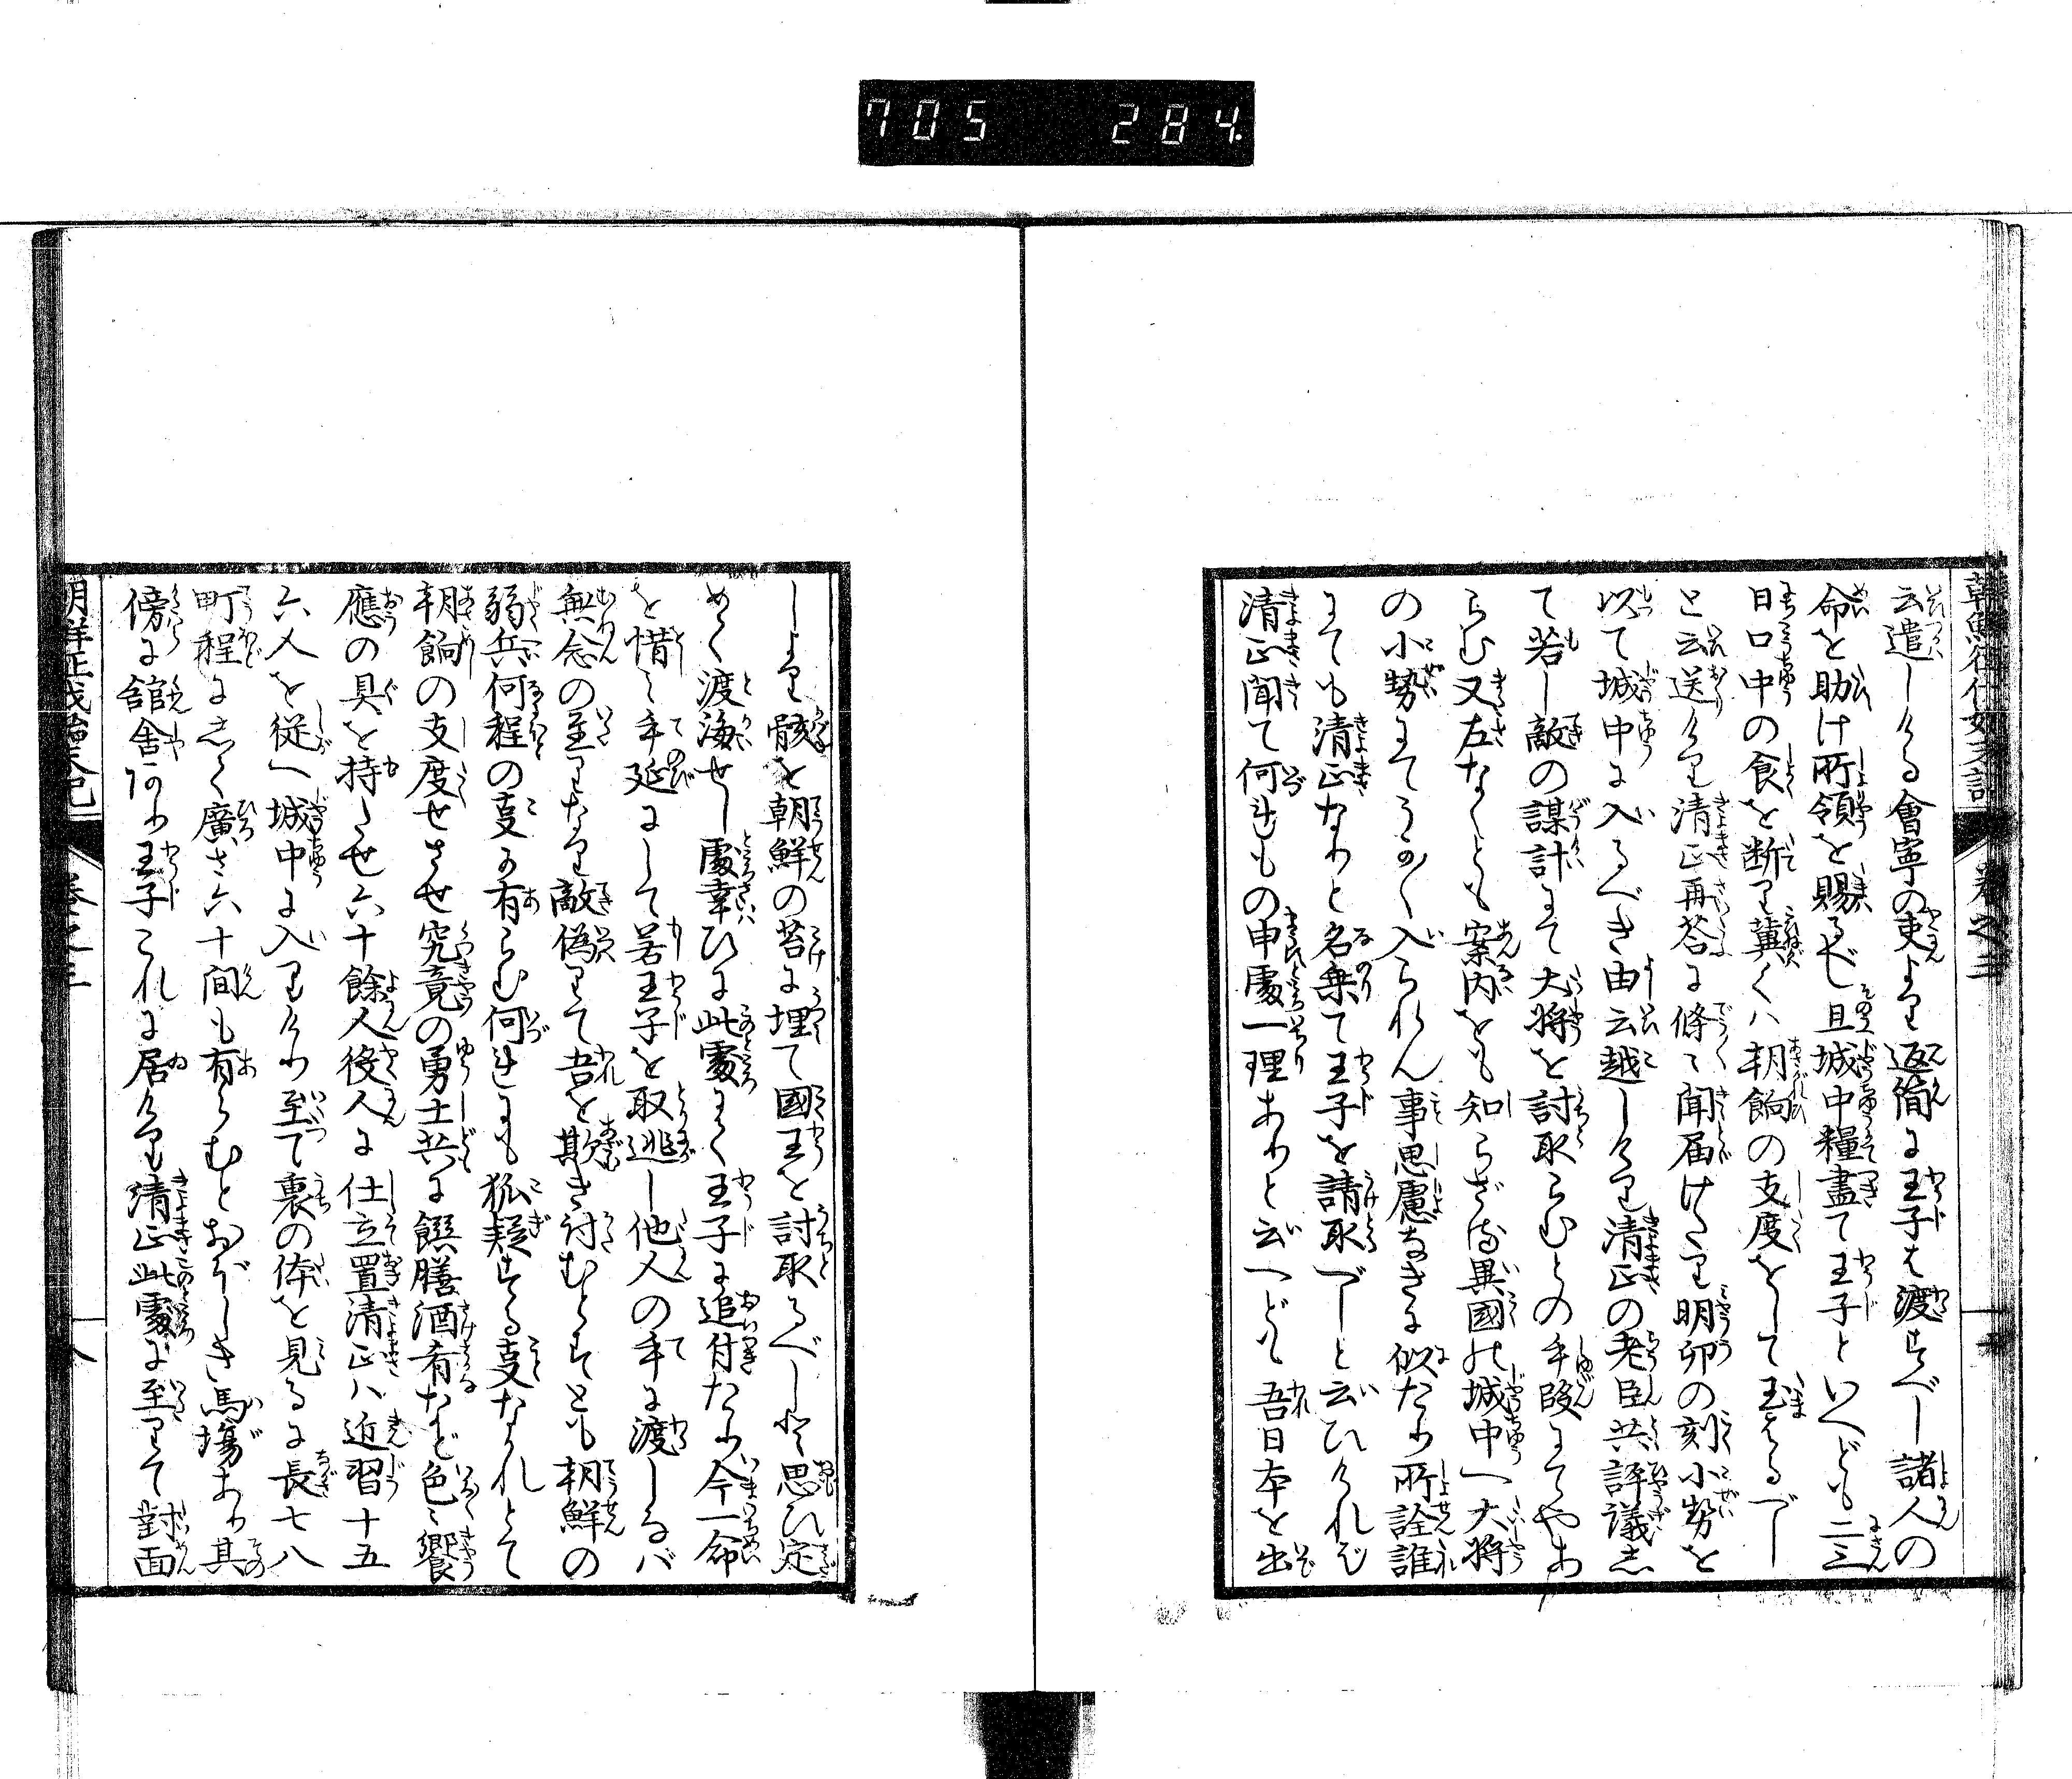 705 284
云遣しける會寧の吏より返簡に王子は渡すべし諸人の
命を助け所領を賜るべし且城中糧盡て王子といへども二三
日口中の食を断り冀くハ朝餉の支度をして玉はるべし
と云送りけり清正再答に條々聞届けたり明卯の刻小勢を
以て城中に入るべき由云越しけり清正の老臣共評議し
て若し敵の謀計にて大将を討取らむとの手段にてやあ
らむ又左なくとも案内をも知らざる異國の城中へ大将
の小勢にてうかく入られん事思慮なきに似たり所詮誰
にても清正なりと名乗て王子を請取べしと云ひければ
清正聞て何れもの申處一理ありと云へども吾日本を出
しより骸を朝鮮の苔に埋て國王を討取るべしと思ひ定
めて渡海せし處幸ひに此處にて王子に追付たり今一命
を惜み手延にして若王子を取逃し他人の手に渡しなバ
無念の至りなり敵偽りて吾を欺き討むとすとも朝鮮の
弱兵何程の事か有らむ何れにも狐疑する事なかれとて
朝餉の支度せさせ究竟の勇士共に饌膳酒肴など色々饗
應の具を持たせ六十餘人役人に仕立置清正ハ近習十五
六人を従へ城中に入りけり至て裏の体を見るに長七八
町程にして廣さ六十間も有らむとおぼしき馬場あり其
傍に舘舎あり王子これに居けり清正此處に至りて對面